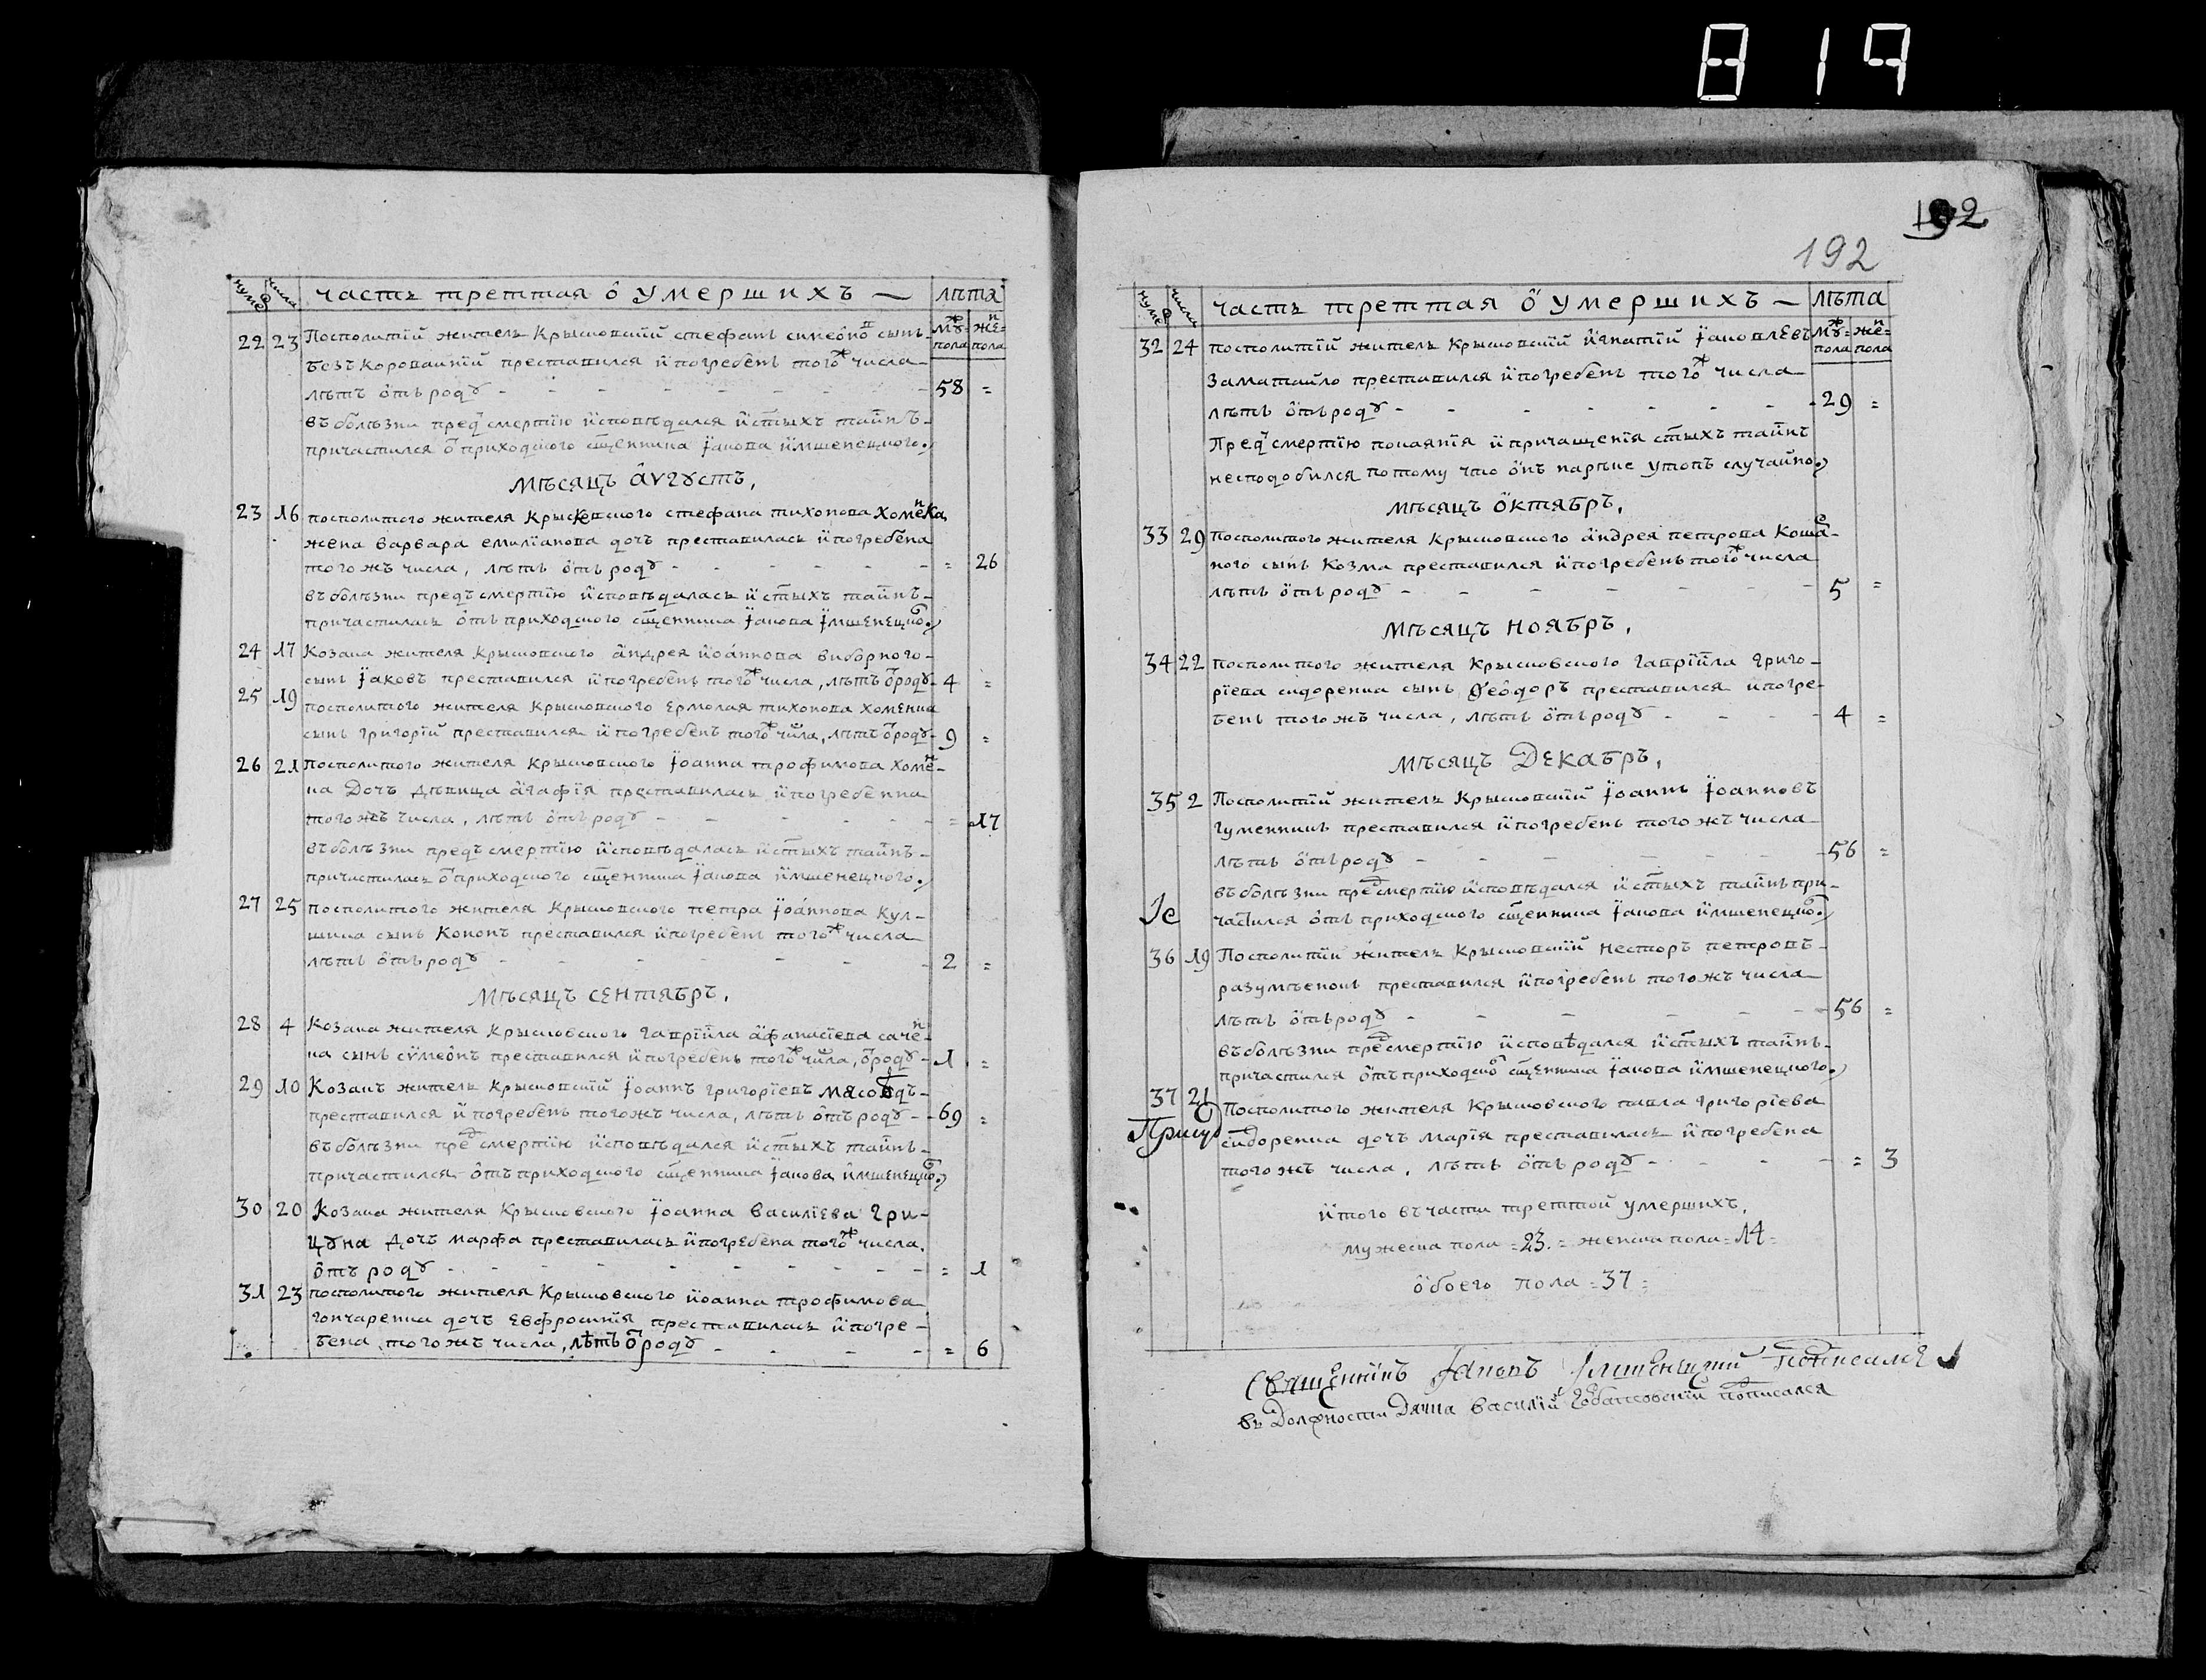 819
192
192
нумер числа часть треттая о умершихъ — лѣта
муж= жен=
пола пола
22 23 Посполитїй житель Крысковскїй стефанъ симеоновъ сынъ
безъкоровайнїй преставился и погребенъ того ж числа
лѣтъ отъ роду - - - - - - - 58 =
въ болѣзни предъ смертїю исповѣдался и стыхъ таинъ
причастился от приходского сщенника Їакова Имшенецкого.
мѣсяцъ августъ,
23 16 посполитого жителя Крысковского стефана тихонова Хоменка
жена варвара емилїанова дочъ преставилась и погребена
того жъ числа, лѣтъ отъ роду - - - - = 26
въ болѣзни предъ смертїю исповѣдалась и стыхъ таинъ
причастилась отъ приходского сщенника Їакова Їмшенецког.
24 17 Козака жителя Крысковского андрея иоаннова виборного
сынъ Їаковъ преставился и погребенъ того ж числа, лѣтъ от роду 4 =
25 19 посполитого жителя Крысковского Ермолая тихонова хоменка
сынъ григорїй преставился и погребенъ того ж числа, лѣтъ от роду 9 =
26 21 посполитого жителя Крысковского Їоанна трофимова хомен-
ка Дочъ дѣвица агафїя преставилась и погребенна
того жъ числа, лѣтъ отъ роду - - - - = 17
въ болѣзни предъ смертїю исповѣдалась и стыхъ таинъ
причастилась от приходского сщенника Їакова Имшенецкого.
27 25 посполитого жителя Крысковского петра Їоаннова Кул-
шика сынъ Кононъ преставился и погребенъ того ж числа
лѣтъ отъ роду - - - - - - 2 =
мѣсяцъ сентябръ,
28 4 Козака жителя Крысковского гаврїила афанасїева сачен-
ка сынъ сѵмеонъ преставился и погребенъ того ж числа, от роду 1 =
29 10 Козакъ житель Крысковскїй Їоаннъ григорїевъ мясоѣдъ
преставился и погребенъ того жъ числа, лѣтъ отъ роду - 69 =
въ болѣзни пред смертїю исповѣдался и стыхъ таинъ
причастился отъ приходского сщенника Їакова Имшенецког.
30 20 Козака жителя Крысковского Їоанна василїева гри-
цуна дочъ марфа преставилась и погребена того ж числа.
отъ роду - - - - - - - = 1
31 23 посполитого жителя Крысковского иоанна трофимова
гончаренка дочъ Евфросинїя преставилась и погре-
бена, того жъ числа, лѣтъ от роду - - - - = 6
нумер числа часть треттая о умершихъ — лѣта
муж= жен=
пола пола
32 24 посполитїй житель Крысковскїй игнатїй Їаковлевъ
Заматайло преставился и погребенъ того ж числа
лѣтъ отъ роду - - - - - - 29 =
Предъ смертїю покаянїя и причащенїя стыхъ таинъ
несподобился потому что онъ нарѣке утопъ случайно.
мѣсяцъ октябръ,
33 29 посполитого жителя Крысковского андрея петрова Коша-
ного сынъ Козма преставился и погребенъ того ж числа
лѣтъ отъ роду - - - - - - 5 =
мѣсяцъ ноябръ,
34 22 посполитого жителя Крысковского гаврїила григо-
рїева сидоренка сынъ Феодоръ преставился и погре-
бенъ того жъ числа, лѣтъ отъ роду - - - 4 =
мѣсяцъ Декабръ,
35 2 Посполитїй житель Крысковскїй Їоаннъ Їоанновъ
гуменникъ преставился и погребенъ того жъ числа
лѣтъ отъ роду - - - - - - 56 =
въ болѣзни пред смертїю исповѣдался и стыхъ таинъ при-
частился отъ приходского сщенника Їакова Имшенецког.
36 19 Посполитїй житель Крысковскїй несторъ петровъ
разумѣнокъ преставился и погребенъ того жъ числа
лѣтъ отъ роду - - - - - - 56 =
въ болѣзни пред смертїю исповѣдался и стыхъ таинъ
причастился отъ приходског сщенника Їакова Имшенецкого.
37 21 Посполитого жителя Крысковского павла григорїева
сидоренка дочъ марїя преставилась и погребена
того жъ числа, лѣтъ отъ роду - - - = 3
итого въ части треттой умершихъ,
мужеска пола = 23. = женска пола = 14 =
обоего пола = 37 =
Священникъ Їаковъ Імшенецкїй подписался
въ Должности Дячка василїй подписался